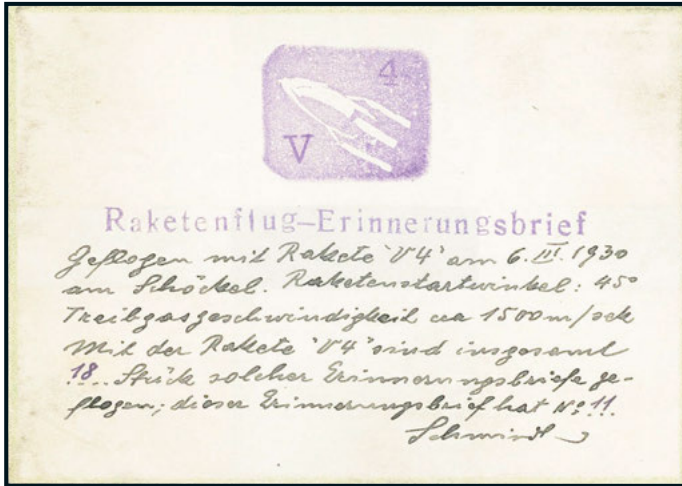 4
V
Raketenflug-Erinnerungsbrief
Geflogen mit Rakete "V4" am 6. III. 1930
am Schöckel. Raketenstartwinkel: 45°
Treibgasgeschwindigkeit cca 1500 m/sek
Mit der Rakete "V4" sind insgesamt
18 Stück solcher Erinnerungsbriefe ge-
flogen; dieser Erinnerungsbrief hat No 11.
Schmiedl